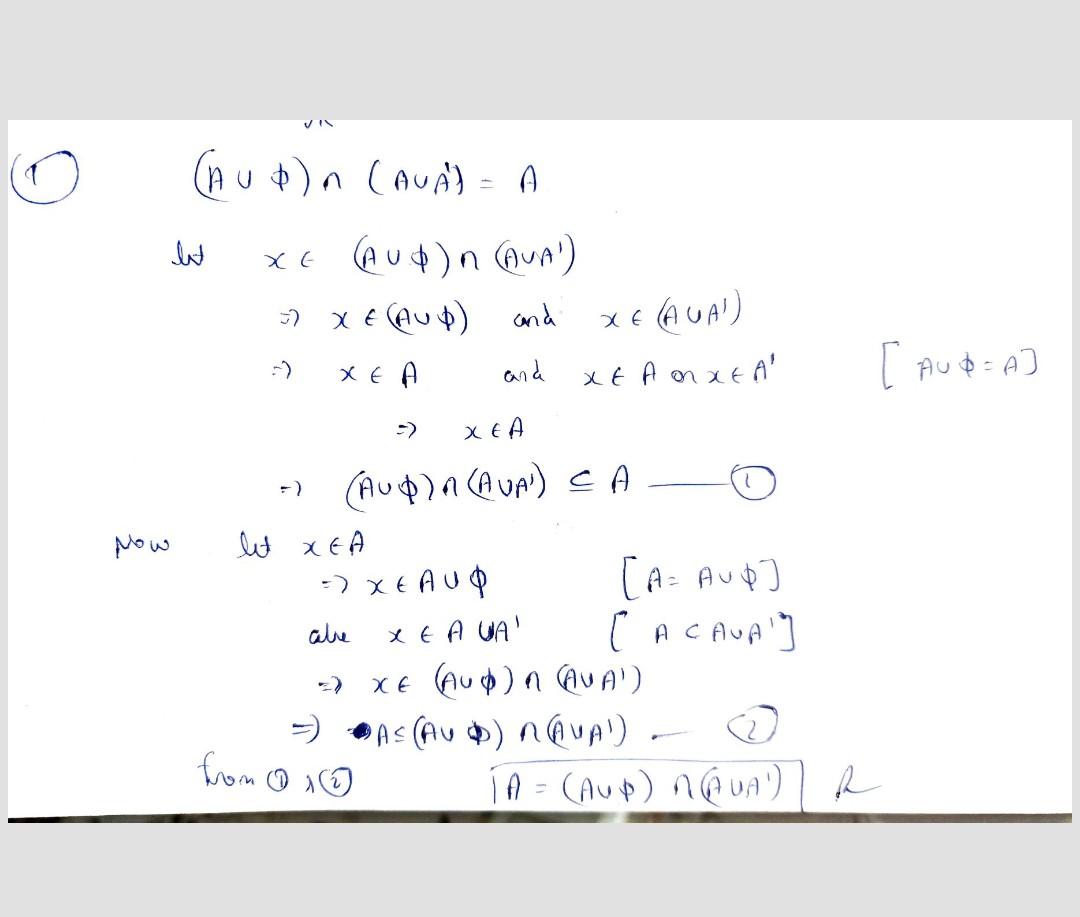 ① (A ∪ ϕ) ∩ (A ∪ A') = A
let x ∈ (A ∪ ϕ) ∩ (A ∪ A')
⇒ x ∈ (A ∪ ϕ) and x ∈ (A ∪ A')
⇒ x ∈ A and x ∈ A or x ∈ A' [A ∪ ϕ = A]
⇒ x ∈ A
⇒ (A ∪ ϕ) ∩ (A ∪ A') ⊆ A — ①
Now let x ∈ A
⇒ x ∈ A ∪ ϕ [A = A ∪ ϕ]
also x ∈ A ∪ A' [A ⊂ A ∪ A']
⇒ x ∈ (A ∪ ϕ) ∩ (A ∪ A')
⇒ A ⊆ (A ∪ ϕ) ∩ (A ∪ A') — ②
from ① & ② A = (A ∪ ϕ) ∩ (A ∪ A')